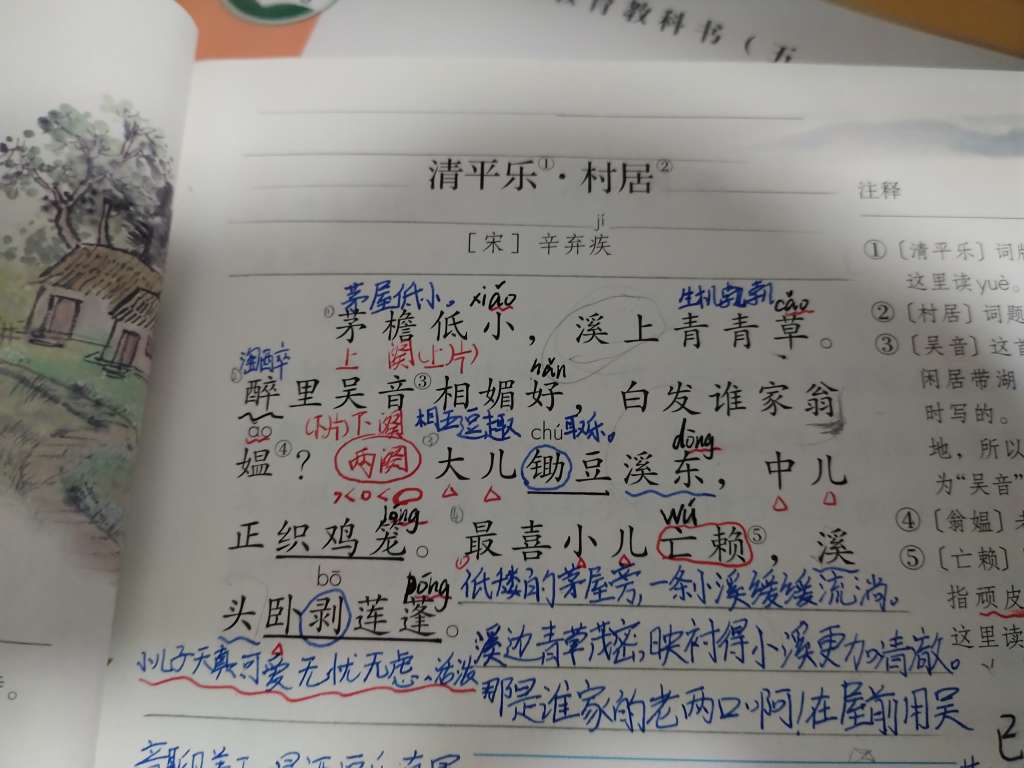 教科书（五
清平乐①·村居②
jí
［宋］辛弃疾
茅屋低小。 xiǎo 生机 cǎo
① 茅檐低小，溪上青青草。
陶醉 上阕(上片) hǎn
醉里吴音③相媚好，白发谁家翁
ǎo (下片)下阕 相互逗趣 chú 取乐。 dōng
媪④？ 两 大儿锄豆溪东，中儿
lóng wú
正织鸡笼。最喜小儿亡赖⑤，溪
bō péng
头卧剥莲蓬。
低矮的茅屋旁，一条小溪缓缓流淌。
溪边青草茂密，映衬得小溪更加清澈。
小儿子天真可爱 无忧无虑、活泼
那是谁家的老两口啊！在屋前用吴
注释
①［清平乐］词牌
这里读yuè。
②［村居］词题
③［吴音］这首
闲居带湖
时写的。
地，所以
为“吴音”
④［翁媪］
⑤［亡赖］
指顽皮
这里读